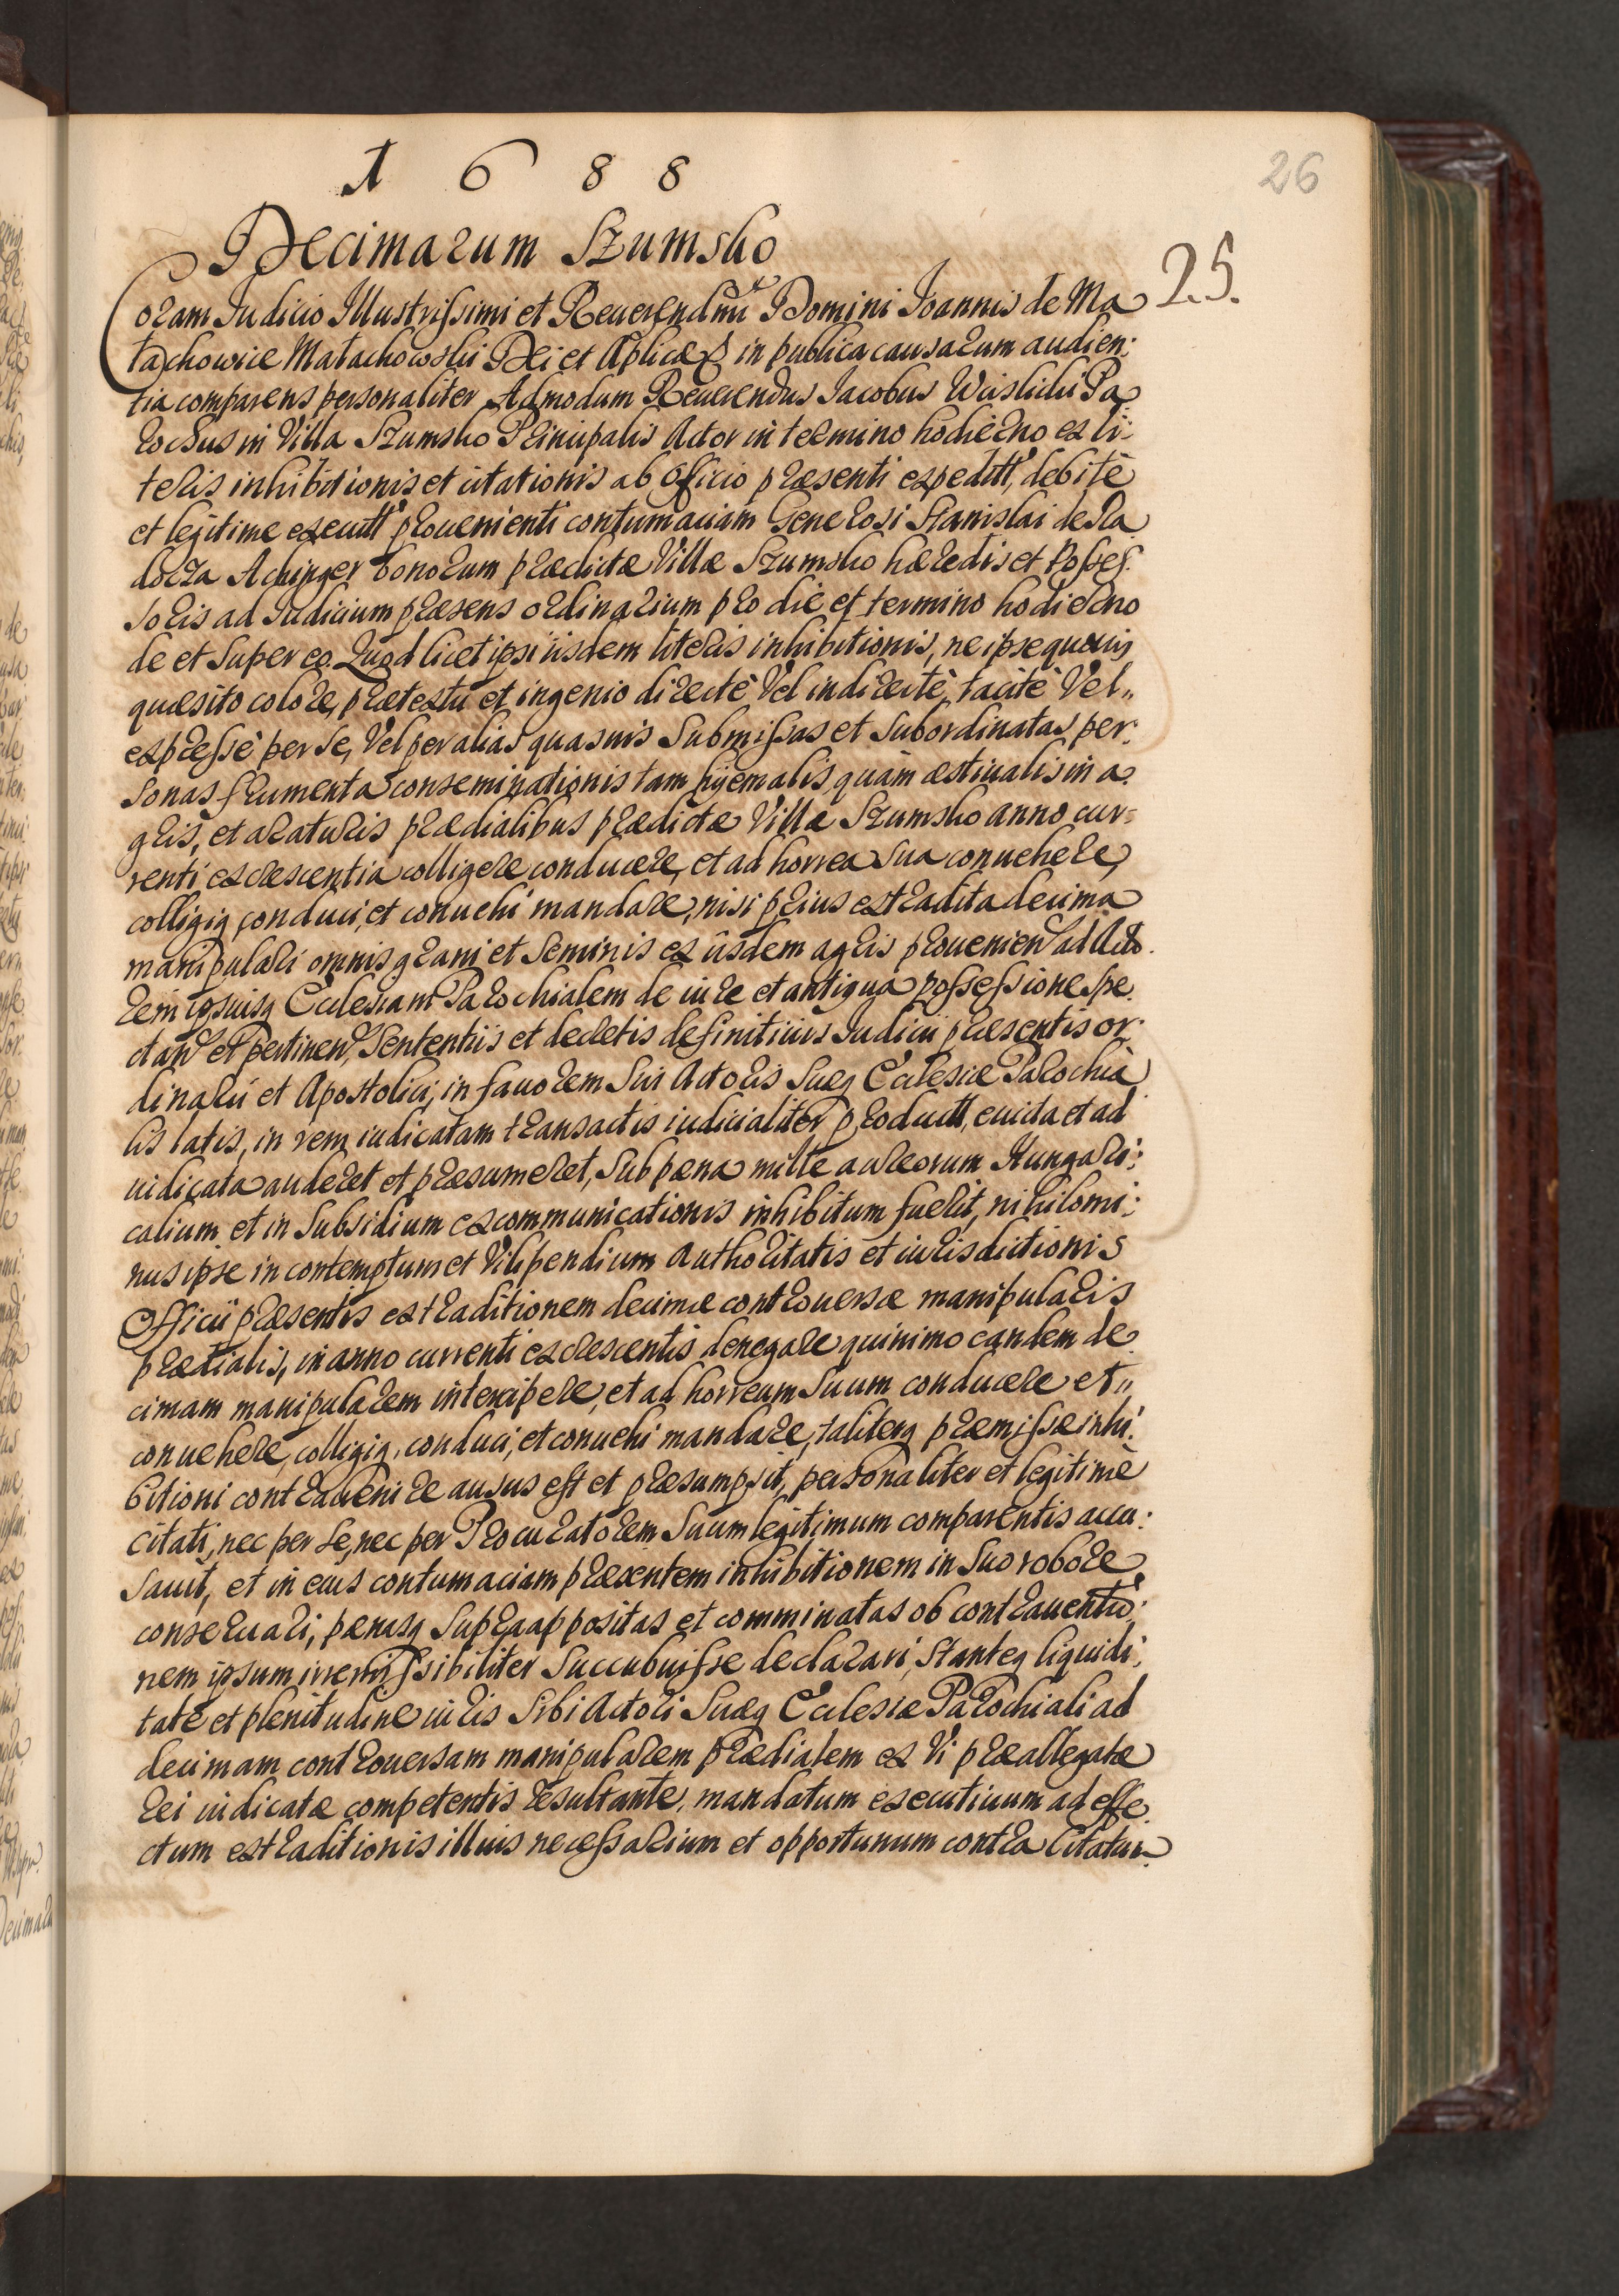 1 6 8 8
26
Decimarum Szumsko
25.
Coram Judicio Illustrissimi et Reuerendmi Domini Joannis de Ma
łachowice Małachowski Dei et Aplicæ S in publica causarum audien:
tia comparens personaliter Admodum Reuerendus Jacobus Wislicki Pa
rochus in Villa Szumsko Principalis Actor in termino hodierno ex li:
teris inhibitionis et citationis ab Officio præsenti expeditt, debitè
et legitime executt prouenienti contumaciam Generosi Stanislai de Ra
docza Achinger bonorum prædictæ Villæ Szumsko hæredis et Posses:
soris ad Judicium præsens ordinarium pro die et termino hodierno
de et super eo. Quod licet ipsi iisdem literis inhibitionis, ne ipse quouis
quæsito colore, prætextu et ingenio directè Vel indirectè, tacitè Vel„
expressè per se, Vel per alias quasuis submissas et subordinatas per:
sonas frumenta conseminationis tam hyemalis, quàm æstiualis in a:
gris, et araturis prædialibus prædictæ Villæ Szumsko anno cur=
renti excrescentia colligere conducere, et ad horrea sua conuehere,
colligiq conduci, et conuehi mandare, nisi prius extradita decima
manipulari omnis grani et seminis ex iisdem agris prouenien ad Acto:
rem ipsiusq Ecclesiam Parochialem de iure et antiqua possessione spe:
ctan et pertinen, Sententiis et decretis definitiuis Judicii præsentis or:
dinarii et Apostolici, in fauorem sui Actoris Suæq Ecclesiæ Parochia
lis latis, in rem iudicatam transactis iudicialiter productt, euicta et ad
iudicata auderet et præsumeret, sub pæna mille aureorum Hungari:
calium et in subsidium excommunicationis inhibitum fuerit, nihilomi:
nus ipse in contemptum et Vilipendium Authoritatis et iurisdictionis
Officii præsentis extraditionem decimæ controuersæ manipularis
prædialis, in anno currenti excrescentis denegare quinimo eandem de
cimam manipularem intercipere, et ad horreum suum conducere et„
conuehere, colligiq, conduci, et conuehi mandare, taliterq præmissæ inhi:
bitioni contrauenire ausus est et præsumpsit, personaliter et legitimè
citati, nec per se, nec per Procuratorem suum legitimum comparentis accu:
sauit, et in eius contumaciam præsentem inhibitionem in suo robore
conseruari, pænasq supra appositas et comminatas ob contrauentio:
nem ipsum irremissibiliter succubuisse declarari, stanteq liquidi:
tate et plenitudine iuris sibi Actori Suæq Ecclesiæ Parochiali ad
decimam controuersam manipularem prædialem ex Vi præallegatæ
rei iudicatæ competentis resultante, mandatum executiuum ad effe
ctum extraditionis illius necessarium et opportunum contra Citatum